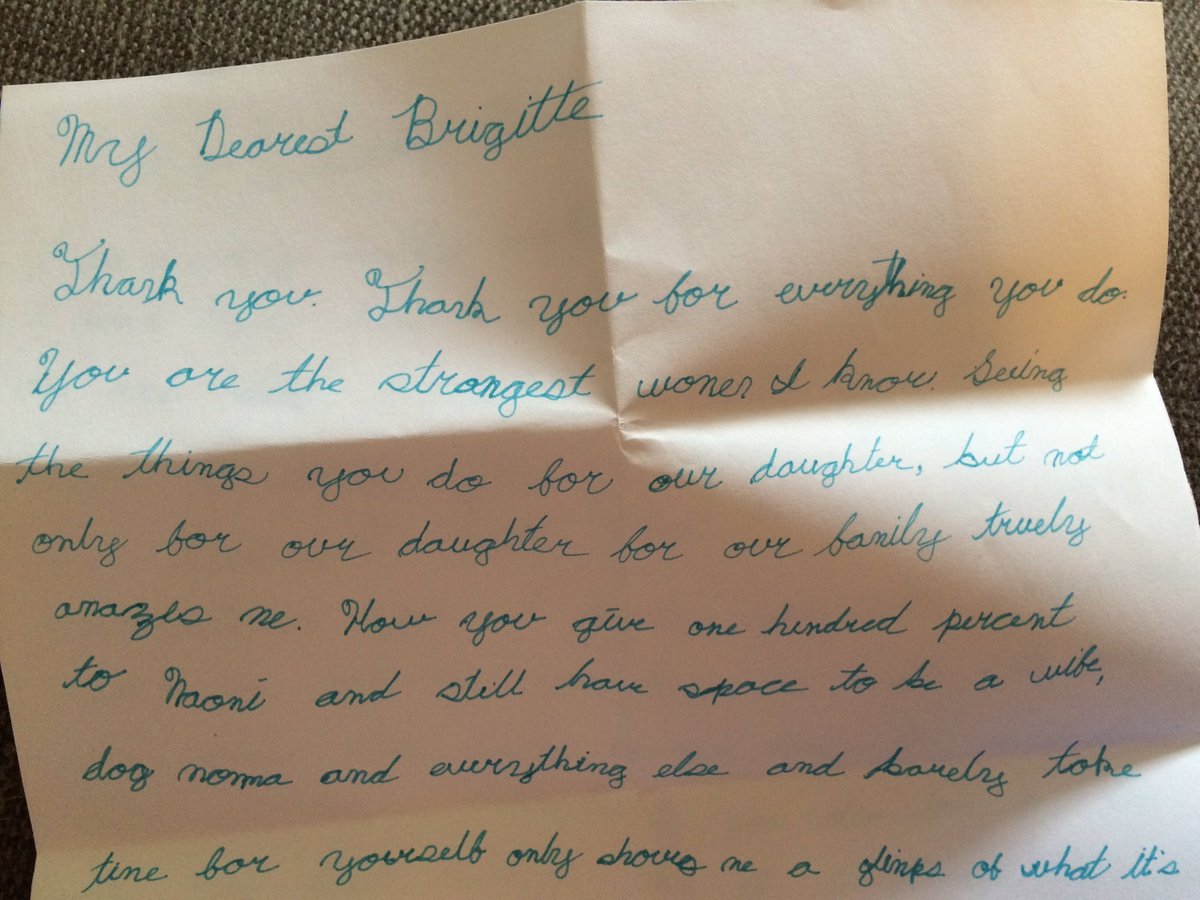 My Dearest Brigitte
Thank you. Thank you for everything you do.
You are the strongest women I know. Seeing
the things you do for our daughter, but not
only for our daughter for our family truely
amazes me. How you give one hundred percent
to Naomi and still have space to be a wife,
dog momma and everything else and barely take
time for yourself only shows me a glimps of what it's